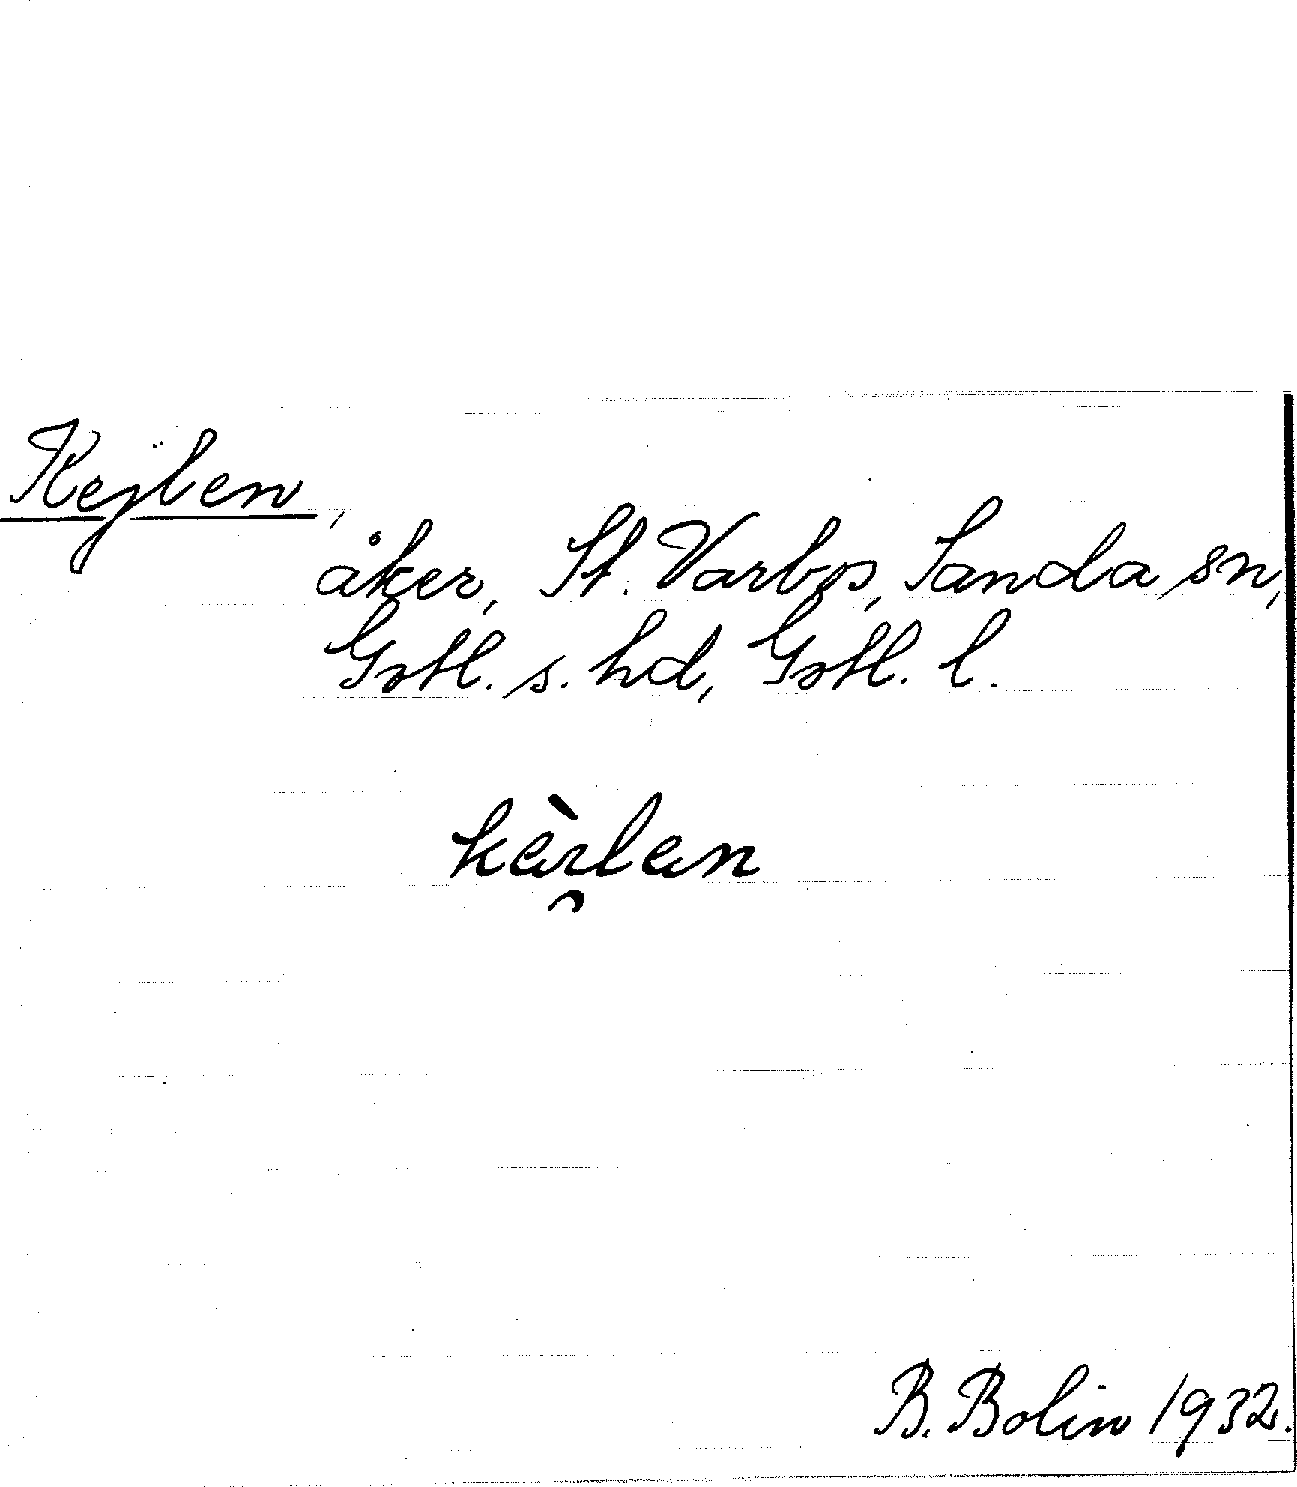 Kejlen,
åker, St. Varbos, Sanda sn,
Gotl. s. hd, Gotl. l.
B. Bolin 1932.